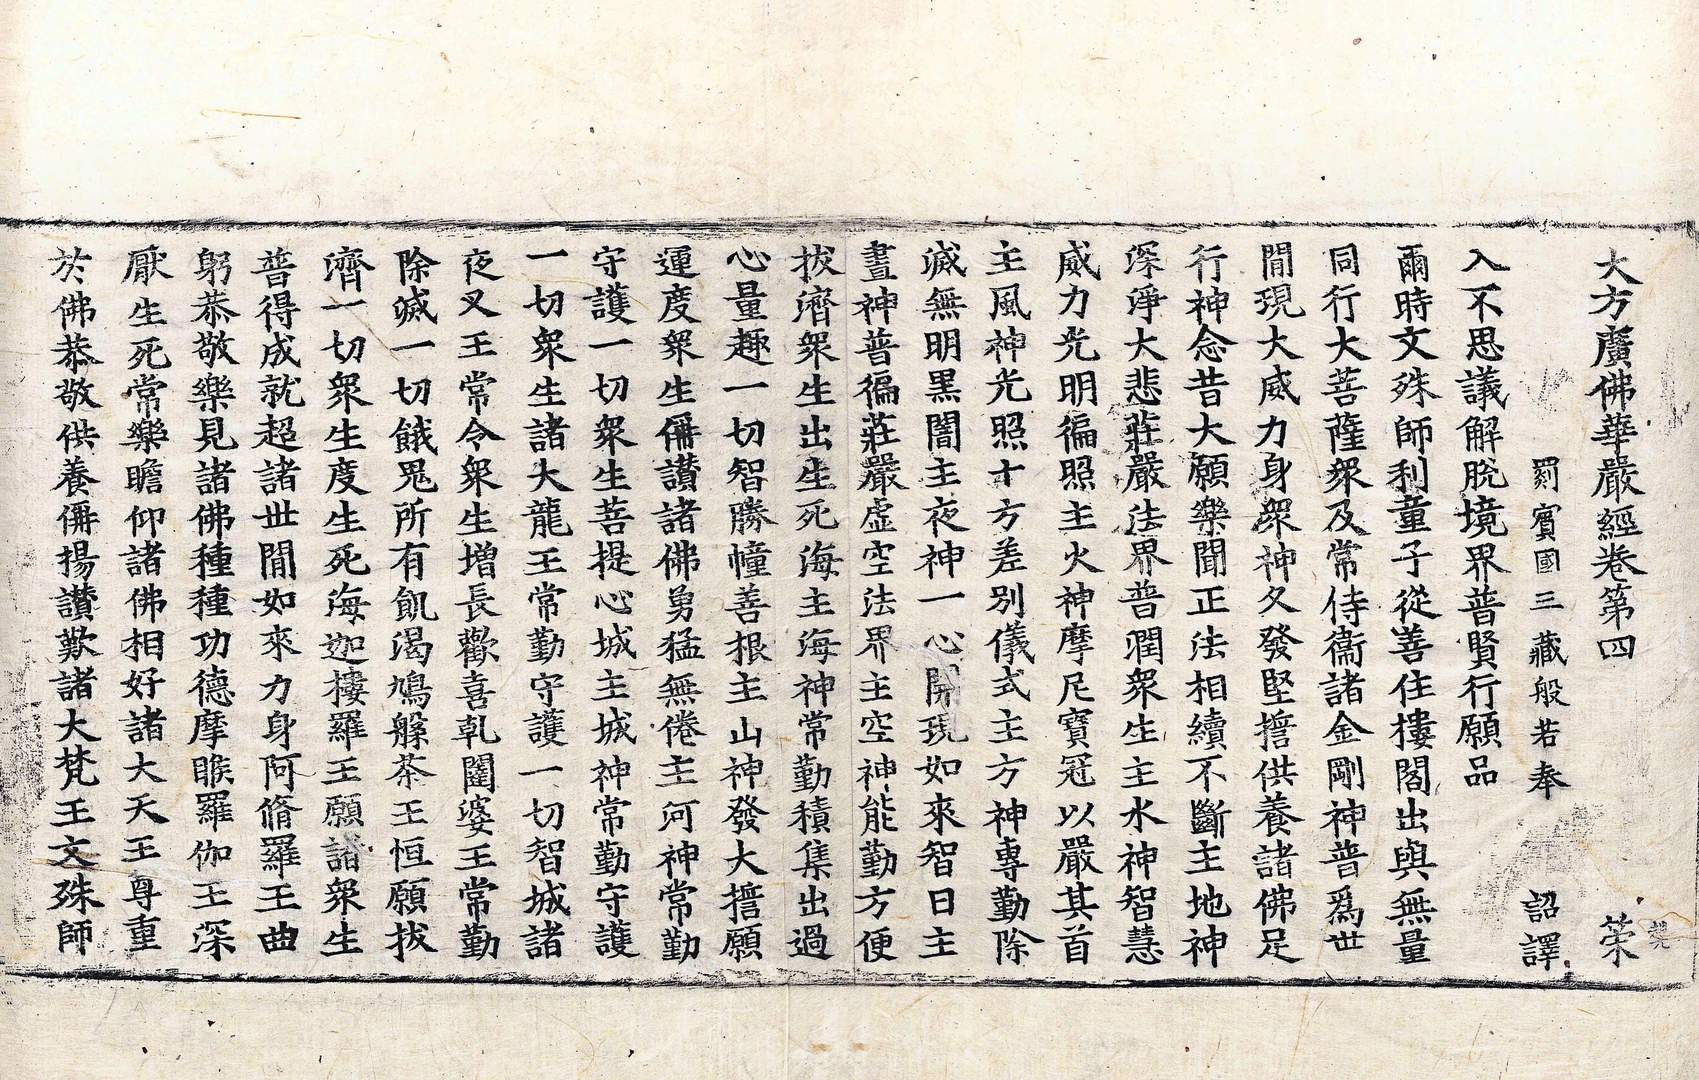 大方廣佛華嚴經卷第四 榮
罽賓國三藏般若奉 詔譯
入不思議解脫境界普賢行願品
爾時文殊師利童子從善住樓閣出與無量
同行大菩薩衆及常侍衞諸金剛神普爲世
閒現大威力身衆神久發堅擔供養諸佛足
行神念昔大願樂聞正法相續不斷主地神
深淨大悲莊嚴法界普潤衆生主水神智慧
威力光明徧照主火神摩尼寶冠以嚴其首
主風神光照十方差別儀式主方神專勤除
滅無明黑闇主夜神一心開現如來智日主
晝神普徧莊嚴虛空法界主空神能勤方便
拔濟衆生出生死海主海神常勤積集出過
心量趣一切智勝幢善根主山神發大擔願
運度衆生儞讃諸佛勇猛無倦主河神常勤
守護一切衆生菩提心城主城神常勤守護
一切衆生諸大龍王常勤守護一切智城諸
夜叉王常令衆生增長歡喜乹闥婆王常勤
除滅一切餓鬼所有飢渴鳩槃茶王恒願拔
濟一切衆生度生死海迦樓羅王願諸衆生
普得成就超諸世閒如來力身阿脩羅王曲
躬恭敬樂見諸佛種種功德摩睺羅伽王深
厭生死常樂瞻仰諸佛相好諸大天王尊重
於佛恭敬供養儞揚讃歎諸大梵王文殊師